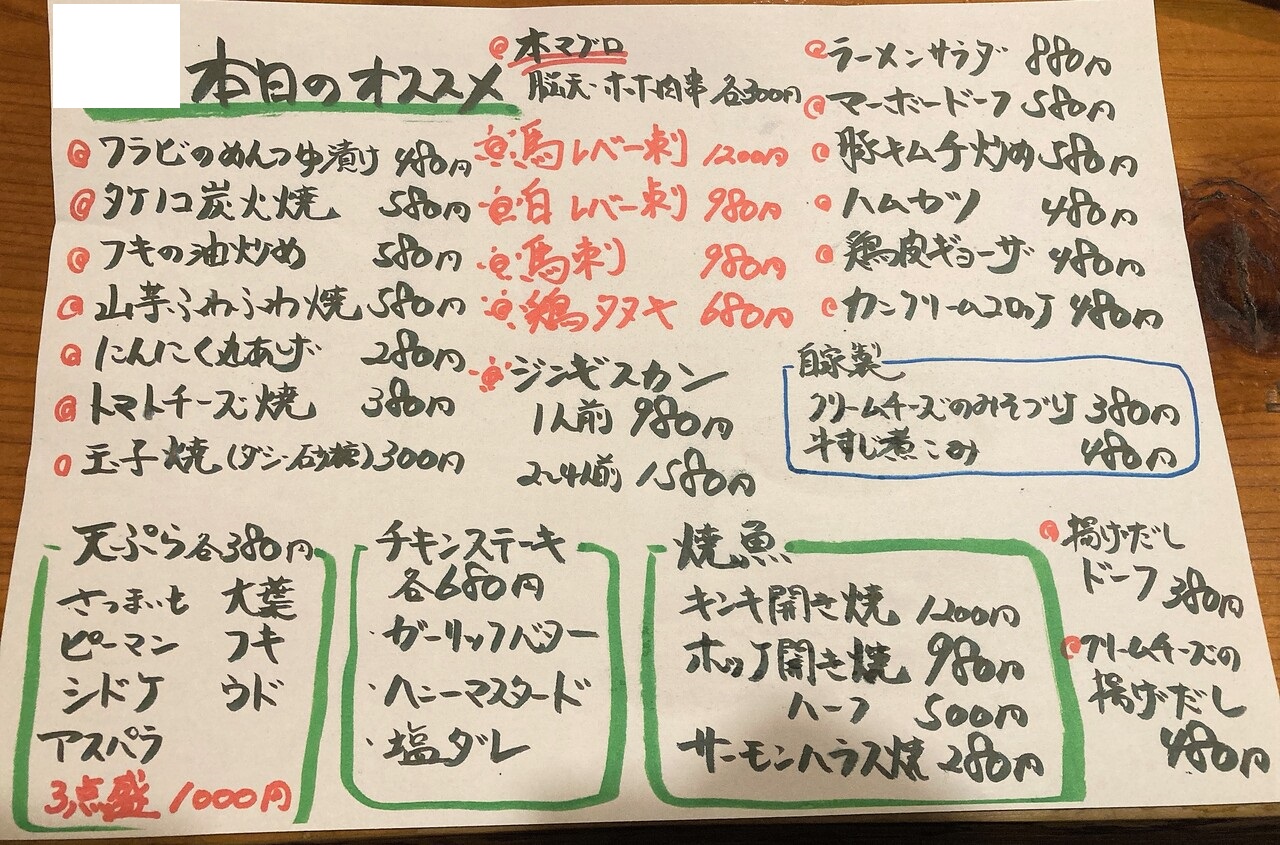 本日のオススメ
ワラビのめんつゆ漬け 480円
タケノコ炭火焼 580円
フキの油炒め 580円
山芋ふわふわ焼 580円
にんにく丸あげ 280円
トマトチーズ焼 380円
玉子焼(ダシ・砂糖)300円
本マグロ
脳天・ホホ肉串 各300円
馬レバー刺 1200円
白レバー刺 980円
馬刺 980円
鶏タタキ 680円
ジンギスカン
1人前 980円
2〜4人前 1580円
ラーメンサラダ 880円
マーボードーフ 580円
豚キムチ炒め 580円
ハムカツ 480円
鶏皮ギョーザ 480円
カニクリームコロッケ 480円
自家製
クリームチーズのみそづけ 380円
牛すじ煮こみ 480円
天ぷら各380円
さつまいも 大葉
ピーマン フキ
シドケ ウド
アスパラ
3点盛 1000円
チキンステーキ
各680円
・ガーリックバター
・ハニーマスタード
・塩ダレ
焼魚
キンキ開き焼 1200円
ホッケ開き焼 980円
ハーフ 500円
サーモンハラス焼 280円
揚げだし
ドーフ 380円
クリームチーズの
揚げだし
480円